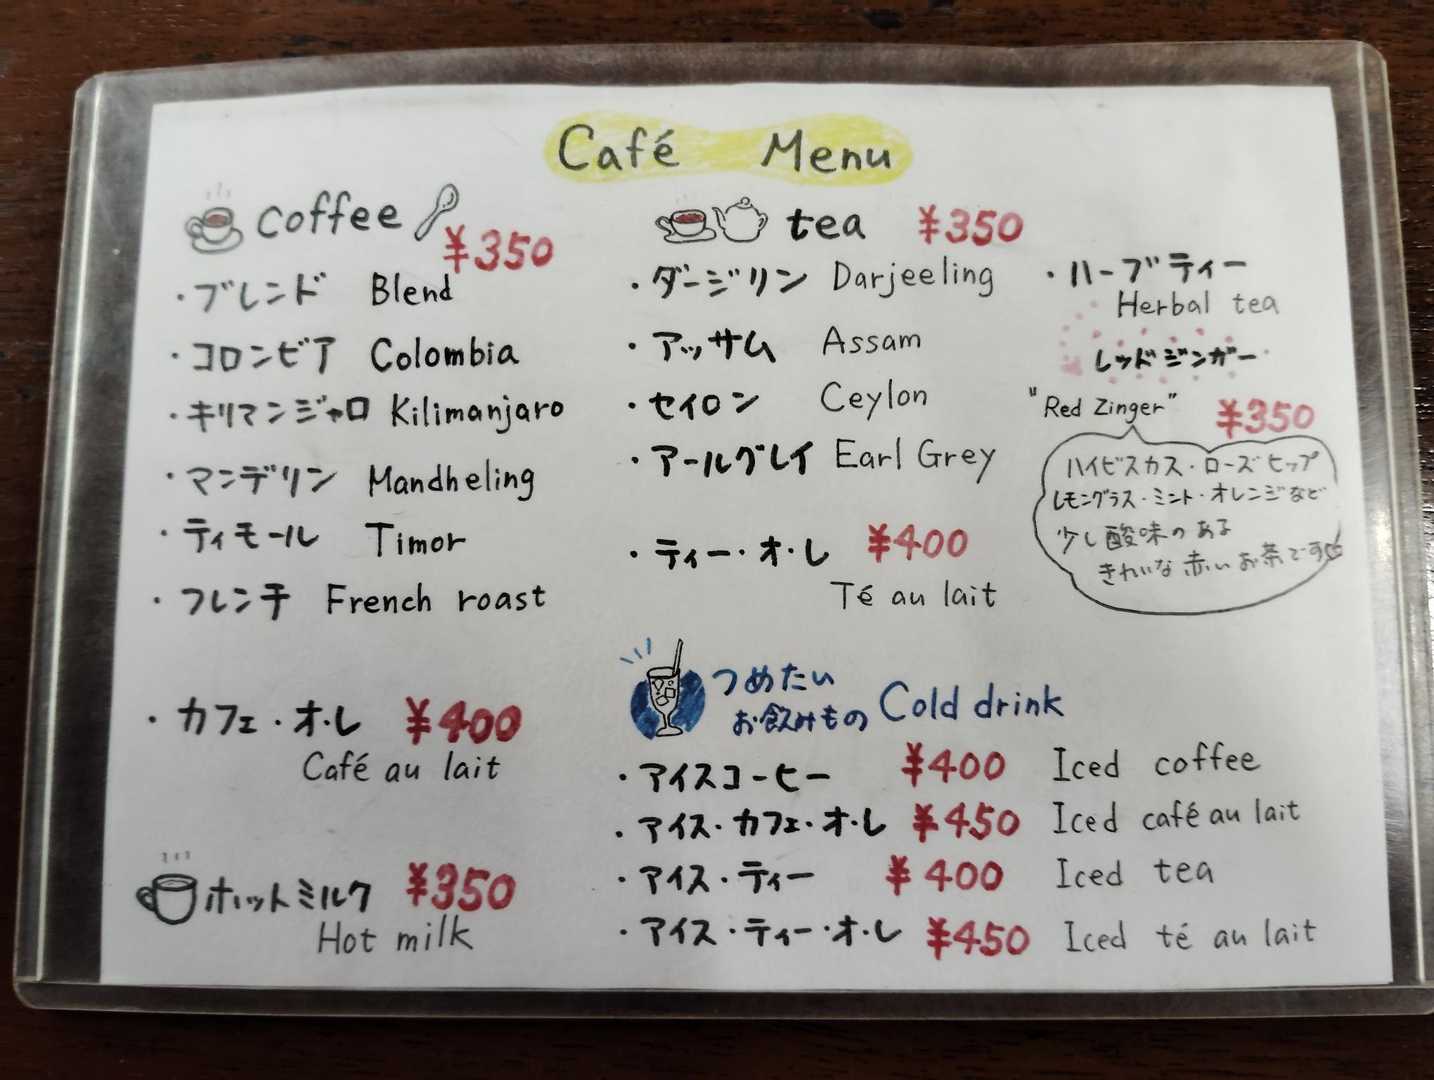 Café Menu
coffee ¥350
・ブレンド Blend
・コロンビア Colombia
・キリマンジャロ Kilimanjaro
・マンデリン Mandheling
・ティモール Timor
・フレンチ French roast
・カフェ・オ・レ ¥400
Café au lait
ホットミルク ¥350
Hot milk
tea ¥350
・ダージリン Darjeeling
・アッサム Assam
・セイロン Ceylon
・アールグレイ Earl Grey
・ティー・オ・レ ¥400
Té au lait
・ハーブティー
Herbal tea
レッドジンガー
"Red Zinger" ¥350
ハイビスカス・ローズヒップ
レモングラス・ミント・オレンジなど
少し酸味のある
きれいな赤いお茶です
つめたい
お飲みもの Cold drink
・アイスコーヒー ¥400 Iced coffee
・アイス・カフェ・オ・レ ¥450 Iced café au lait
・アイス・ティー ¥400 Iced tea
・アイス・ティー・オ・レ ¥450 Iced té au lait